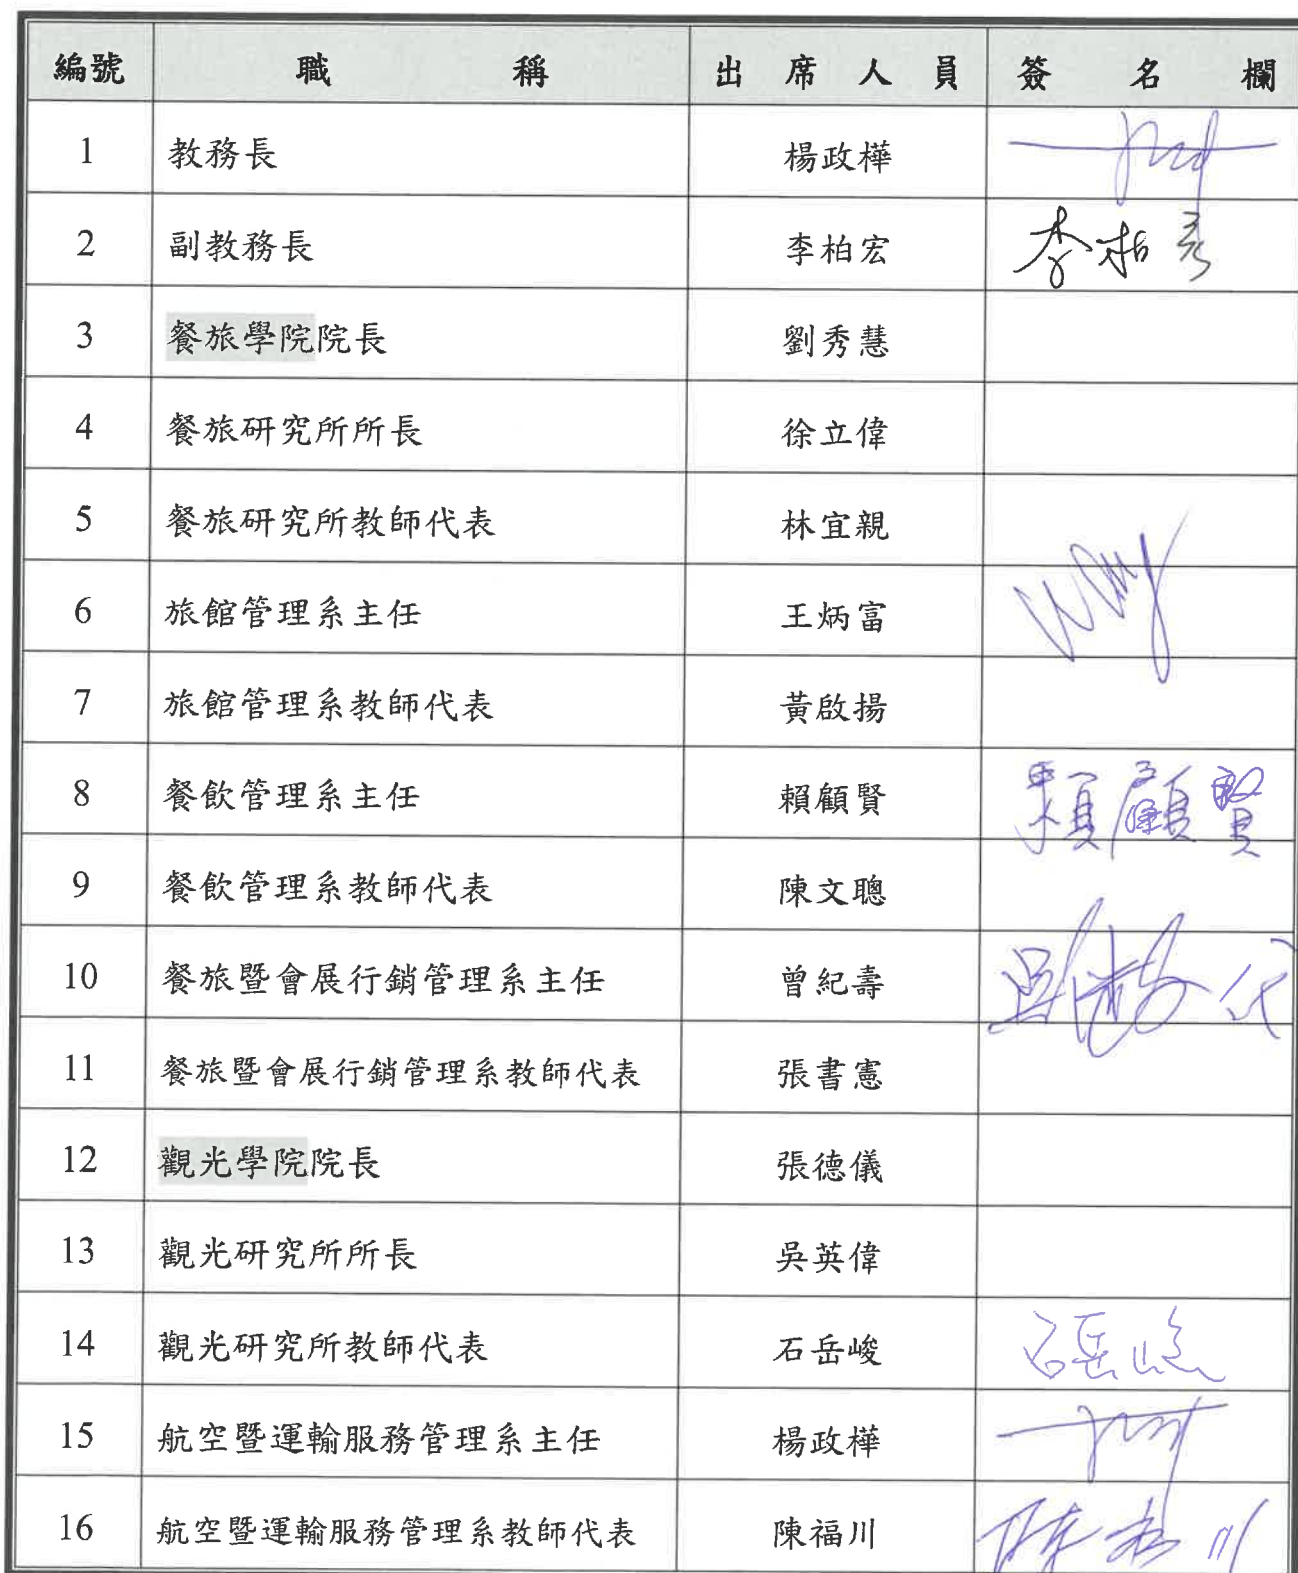 編號 職稱 出席人員 簽名欄
1 教務長 楊政樺
2 副教務長 李柏宏 李柏宏
3 餐旅學院院長 劉秀慧
4 餐旅研究所所長 徐立偉
5 餐旅研究所教師代表 林宜親
6 旅館管理系主任 王炳富
7 旅館管理系教師代表 黃啟揚
8 餐飲管理系主任 賴顧賢 賴顧賢
9 餐飲管理系教師代表 陳文聰
10 餐旅暨會展行銷管理系主任 曾紀壽 代
11 餐旅暨會展行銷管理系教師代表 張書憲
12 觀光學院院長 張德儀
13 觀光研究所所長 吳英偉
14 觀光研究所教師代表 石岳峻 石岳峻
15 航空暨運輸服務管理系主任 楊政樺
16 航空暨運輸服務管理系教師代表 陳福川 陳福川